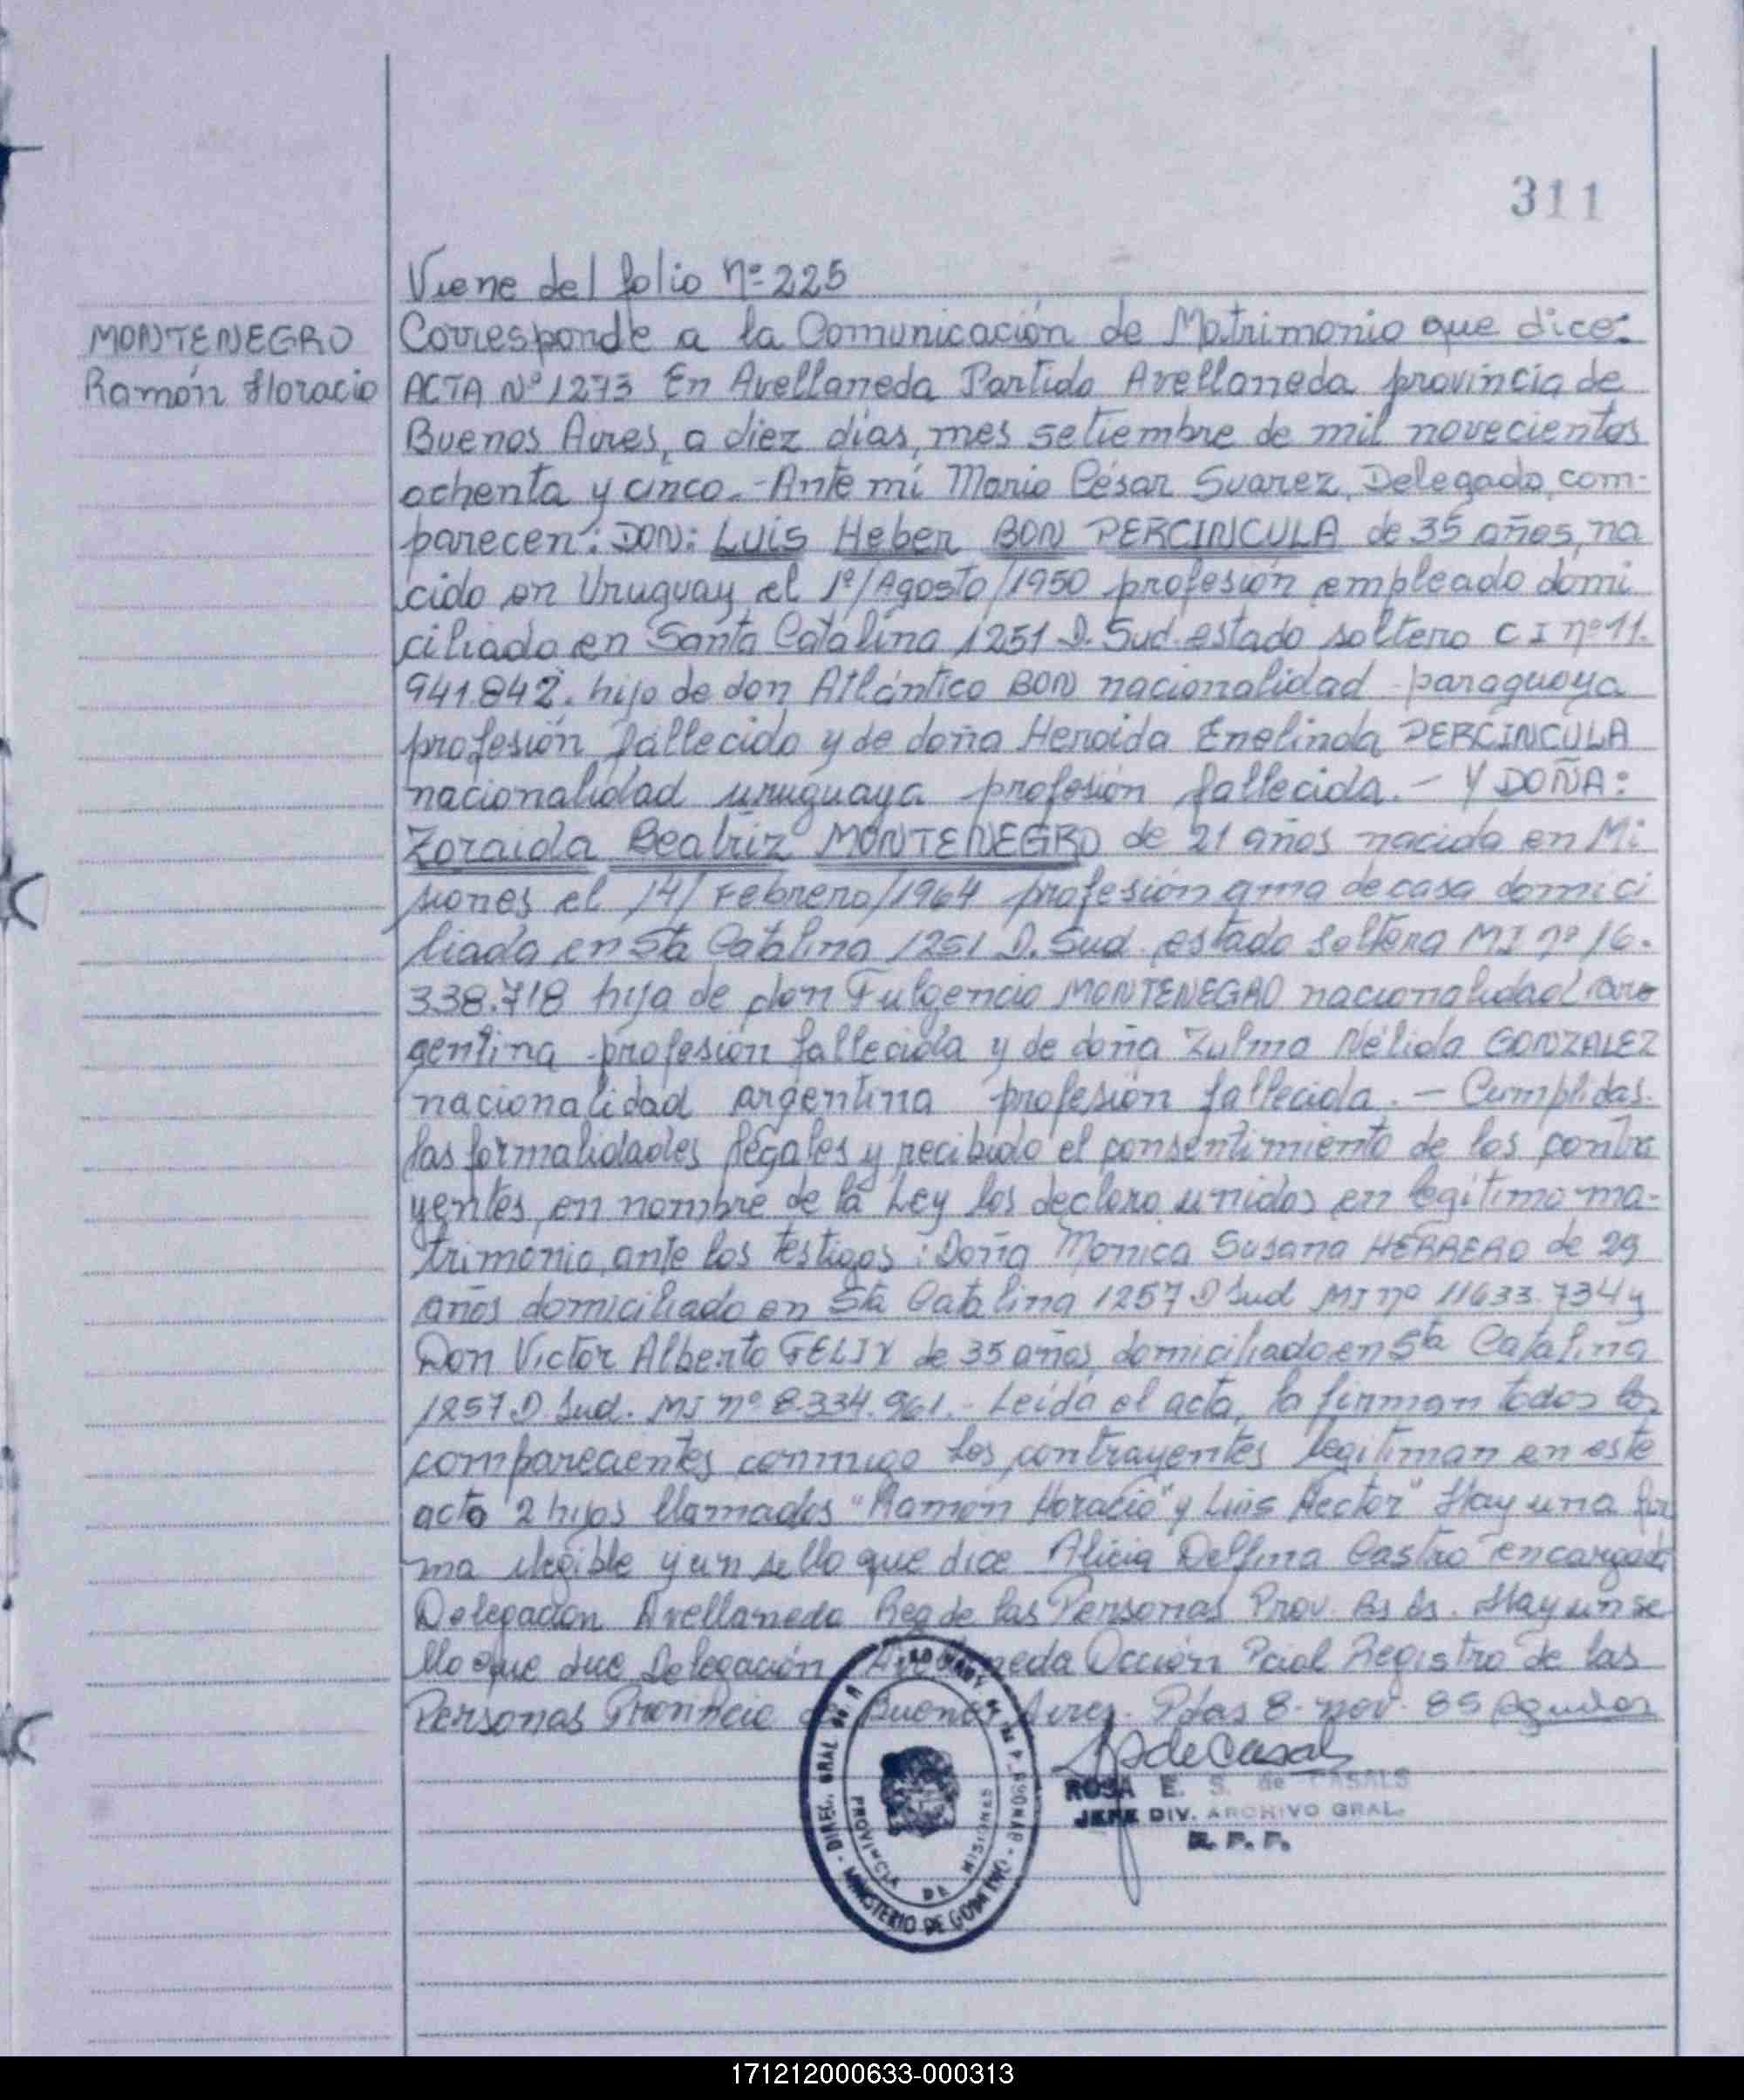 311
Viene del folio Nº 225
MONTENEGRO
Ramón Horacio
Corresponde a la Comunicación de Matrimonio que dice:
ACTA Nº 1273 En Avellaneda Partido Avellaneda provincia de
Buenos Aires, a diez días, mes setiembre de mil novecientos
ochenta y cinco.- Ante mí Mario César Suarez, Delegado, com-
parecen: DON: Luis Heber BON PERCINCULA de 35 años, na
cido en Uruguay, el 1º/Agosto/1950 profesión empleado domi
ciliado en Santa Catalina 1251 D. Sud. estado soltero C I nº 11.
941.842. hijo de don Atlántico BON nacionalidad paraguaya
profesión fallecido y de doña Heroida Enelinda PERCINCULA
nacionalidad uruguaya profesión fallecida. - Y DOÑA:
Zoraida Beatriz MONTENEGRO de 21 años nacida en Mi
siones el 14/Febrero/1964 profesión ama de casa domici
liada en Sta Catalina 1251 D. Sud. estado soltera MI nº 16.
338.718 hija de don Fulgencio MONTENEGRO nacionalidad are
gentina profesión fallecida y de doña Zulma Nélida GONZALEZ
nacionalidad argentina profesión fallecida. - Cumplidas
las formalidades légales y recibido el consentimiento de los contra
yentes, en nombre de la Ley los declaro unidos en legítimo ma-
trimonio, ante los testigos: Doña Monica Susana HERRERO de 29
años domiciliado en Sta Catalina 1257 D Sud MI nº 11633.734 y
Don Victor Alberto FELIX de 35 años, domiciliado en Sta Catalina
1257 D Sud. MI nº 8.334.961.- Leída el acta, la firman todos los
comparecientes conmigo Los contrayentes legitiman en este
acto 2 hijos llamados "Ramón Horacio" y Luis Hector" Hay una fir
ma ilegible y un sello que dice Alicia Delfina Castro encargada
Delegación Avellaneda Reg de las Personas Prov. Bs As. Hay un se
llo que dice Delegación Avellaneda Dcción Pcial Registro de las
Personas Provincia de Buenos Aires. Pdas 8- nov- 85
ROSA E. S. de CASALS
JEFE DIV. ARCHIVO GRAL.
R. P. P.
PROVINCIA DE MISIONES
MINISTERIO DE GOBIERNO
171212000633-000313